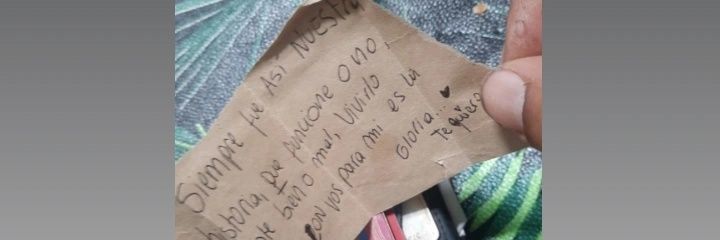 Siempre fue Así NUESTRA
historia, que funcione O no,
bien o mal, Vivirlo
con vos para mi es la
Gloria...
Te quiero